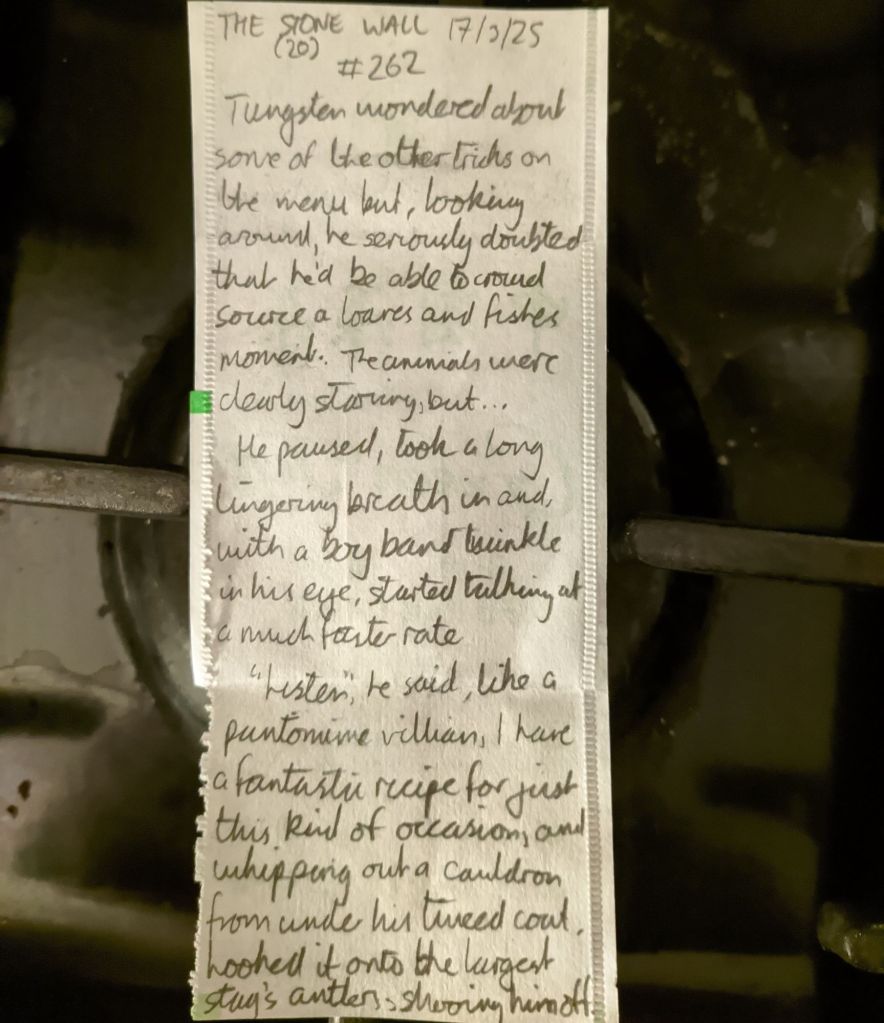 THE STONE WALL 17/3/25
(20)
#262
Tungsten wondered about
some of the other tricks on
the menu but, looking
around, he seriously doubted
that he'd be able to crowd
source a loaves and fishes
moment. The animals were
clearly starving, but...
He paused, took a long
lingering breath in and,
with a boy band twinkle
in his eye, started talking at
a much faster rate
"Listen", he said, like a
pantomime villian, I have
a fantastic recipe for just
this kind of occasion, and
whipping out a cauldron
from under his tweed coat,
hooked it onto the largest
stag's antlers, shooing him off.